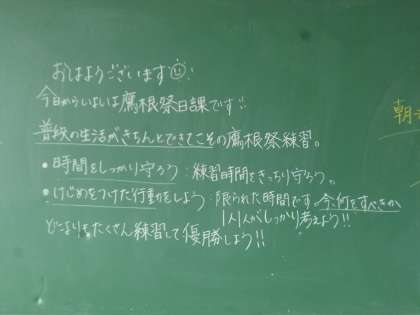 おはようございます
今日からいよいよ鷹根祭日課です!!
普段の生活がきちんとできてこその鷹根祭練習。
・時間をしっかり守ろう:練習時間をきっちり守ろう。
・けじめをつけた行動をしよう:限られた時間です。今何をすべきか
1人1人がしっかり考えよう!!
どこよりもたくさん練習して優勝しよう!!
朝